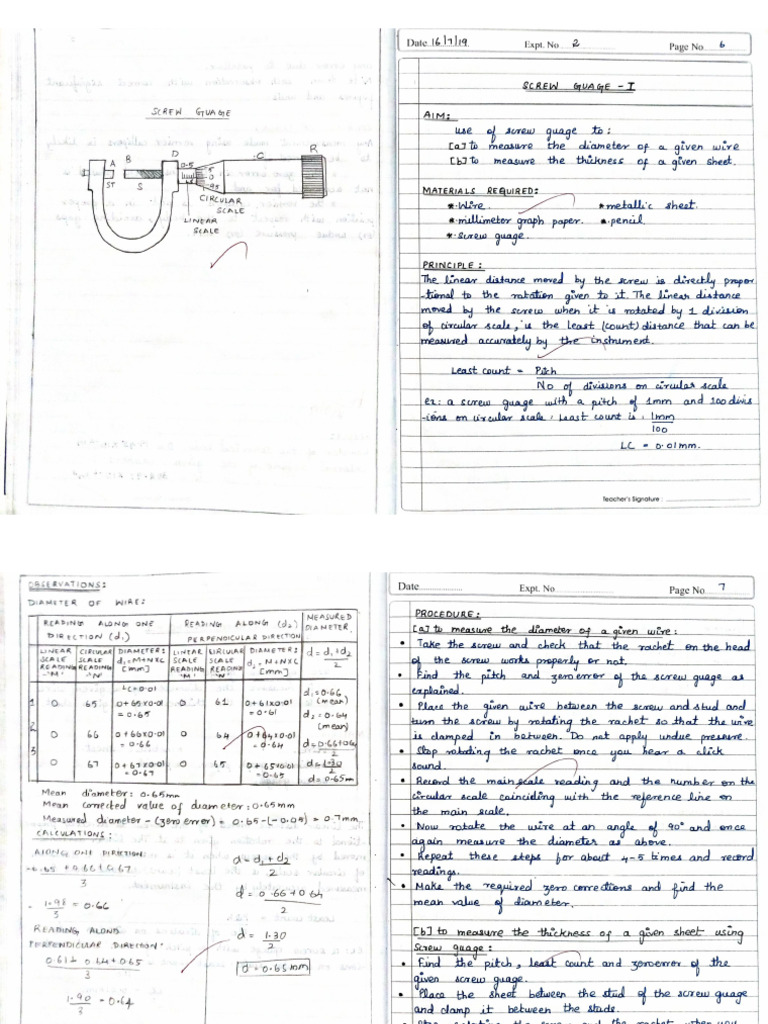 SCREW GUAGE
A
B
D
C
R
ST
S
0.5
5
0
95
CIRCULAR
SCALE
LINEAR
SCALE
Date 16/7/19
Expt. No 2
Page No. 6
SCREW GUAGE - I
AIM:
use of screw guage to:
[a] to measure the diameter of a given wire
[b] to measure the thickness of a given sheet.
MATERIALS REQUIRED:
* Wire. * metallic sheet.
* millimeter graph paper. * pencil.
* screw guage.
PRINCIPLE:
The linear distance moved by the screw is directly propor
-tional to the rotation given to it. The linear distance
moved by the screw when it is rotated by 1 division
of circular scale, is the least (count) distance that can be
measured accurately by the instrument.
Least count = Pitch
No of divisions on circular scale
ex: a screw guage with a pitch of 1mm and 100 divis
-ions on circular scale. Least count is. 1mm
100
LC = 0.01mm.
Teacher's Signature :
OBSERVATIONS:
DIAMETER OF WIRE:
READING ALONG ONE DIRECTION (d1)
READING ALONG (d2) PERPENDICULAR DIRECTION
MEASURED DIAMETER
LINEAR SCALE READING 'M'
CIRCULAR SCALE READING 'N'
DIAMETER: d1=M+NXC [mm]
LINEAR SCALE READING 'M'
CIRCULAR SCALE READING 'N'
DIAMETER: d2=M+NXC [mm]
d = d1+d2
2
LC=0.01
1 0 65 0+65x0.01 = 0.65 0 61 0+61x0.01 = 0.61
2 0 66 0+66x0.01 = 0.66 0 64 0+64x0.01 = 0.64
3 0 67 0+67x0.01 = 0.67 0 65 0+65x0.01 = 0.65
d1=0.66
(mean)
d2=0.64
(mean)
d=0.66+0.64
2
d=1.30
2
d=0.65mm
Mean diameter: 0.65mm
Mean corrected value of diameter: 0.65mm
Measured diameter - (zero error) = 0.65-(-0.05) = 0.7mm
CALCULATIONS:
ALONG ONE DIRECTION:
=0.65 + 0.66 + 0.67
3
= 1.98 = 0.66
3
READING ALONG
PERPENDICULAR DIRECTION:
0.61+ 0.64+0.65
3
1.90 = 0.64
3
d = d1 + d2
2
d = 0.66 + 0.64
2
d = 1.30
2
d = 0.65mm
Date
Expt. No
Page No. 7
PROCEDURE:
[a] to measure the diameter of a given wire:
• Take the screw and check that the rachet on the head
of the screw works properly or not.
• Find the pitch and zero error of the screw guage as
explained.
• Place the given wire between the screw and stud and
turn the screw by rotating the rachet so that the wire
is clamped in between. Do not apply undue pressure.
• Stop rotating the rachet once you hear a click
sound.
• Record the main scale reading and the number on the
circular scale coinciding with the reference line on
the main scale.
• Now rotate the wire at an angle of 90° and once
again measure the diameter as above.
• Repeat these steps for about 4-5 times and record
readings.
• Make the required zero corrections and find the
mean value of diameter.
[b] to measure the thickness of a given sheet using
screw guage:
• Find the pitch, least count and zero error of the
given screw guage.
• Place the sheet between the stud of the screw guage
and clamp it between the studs.